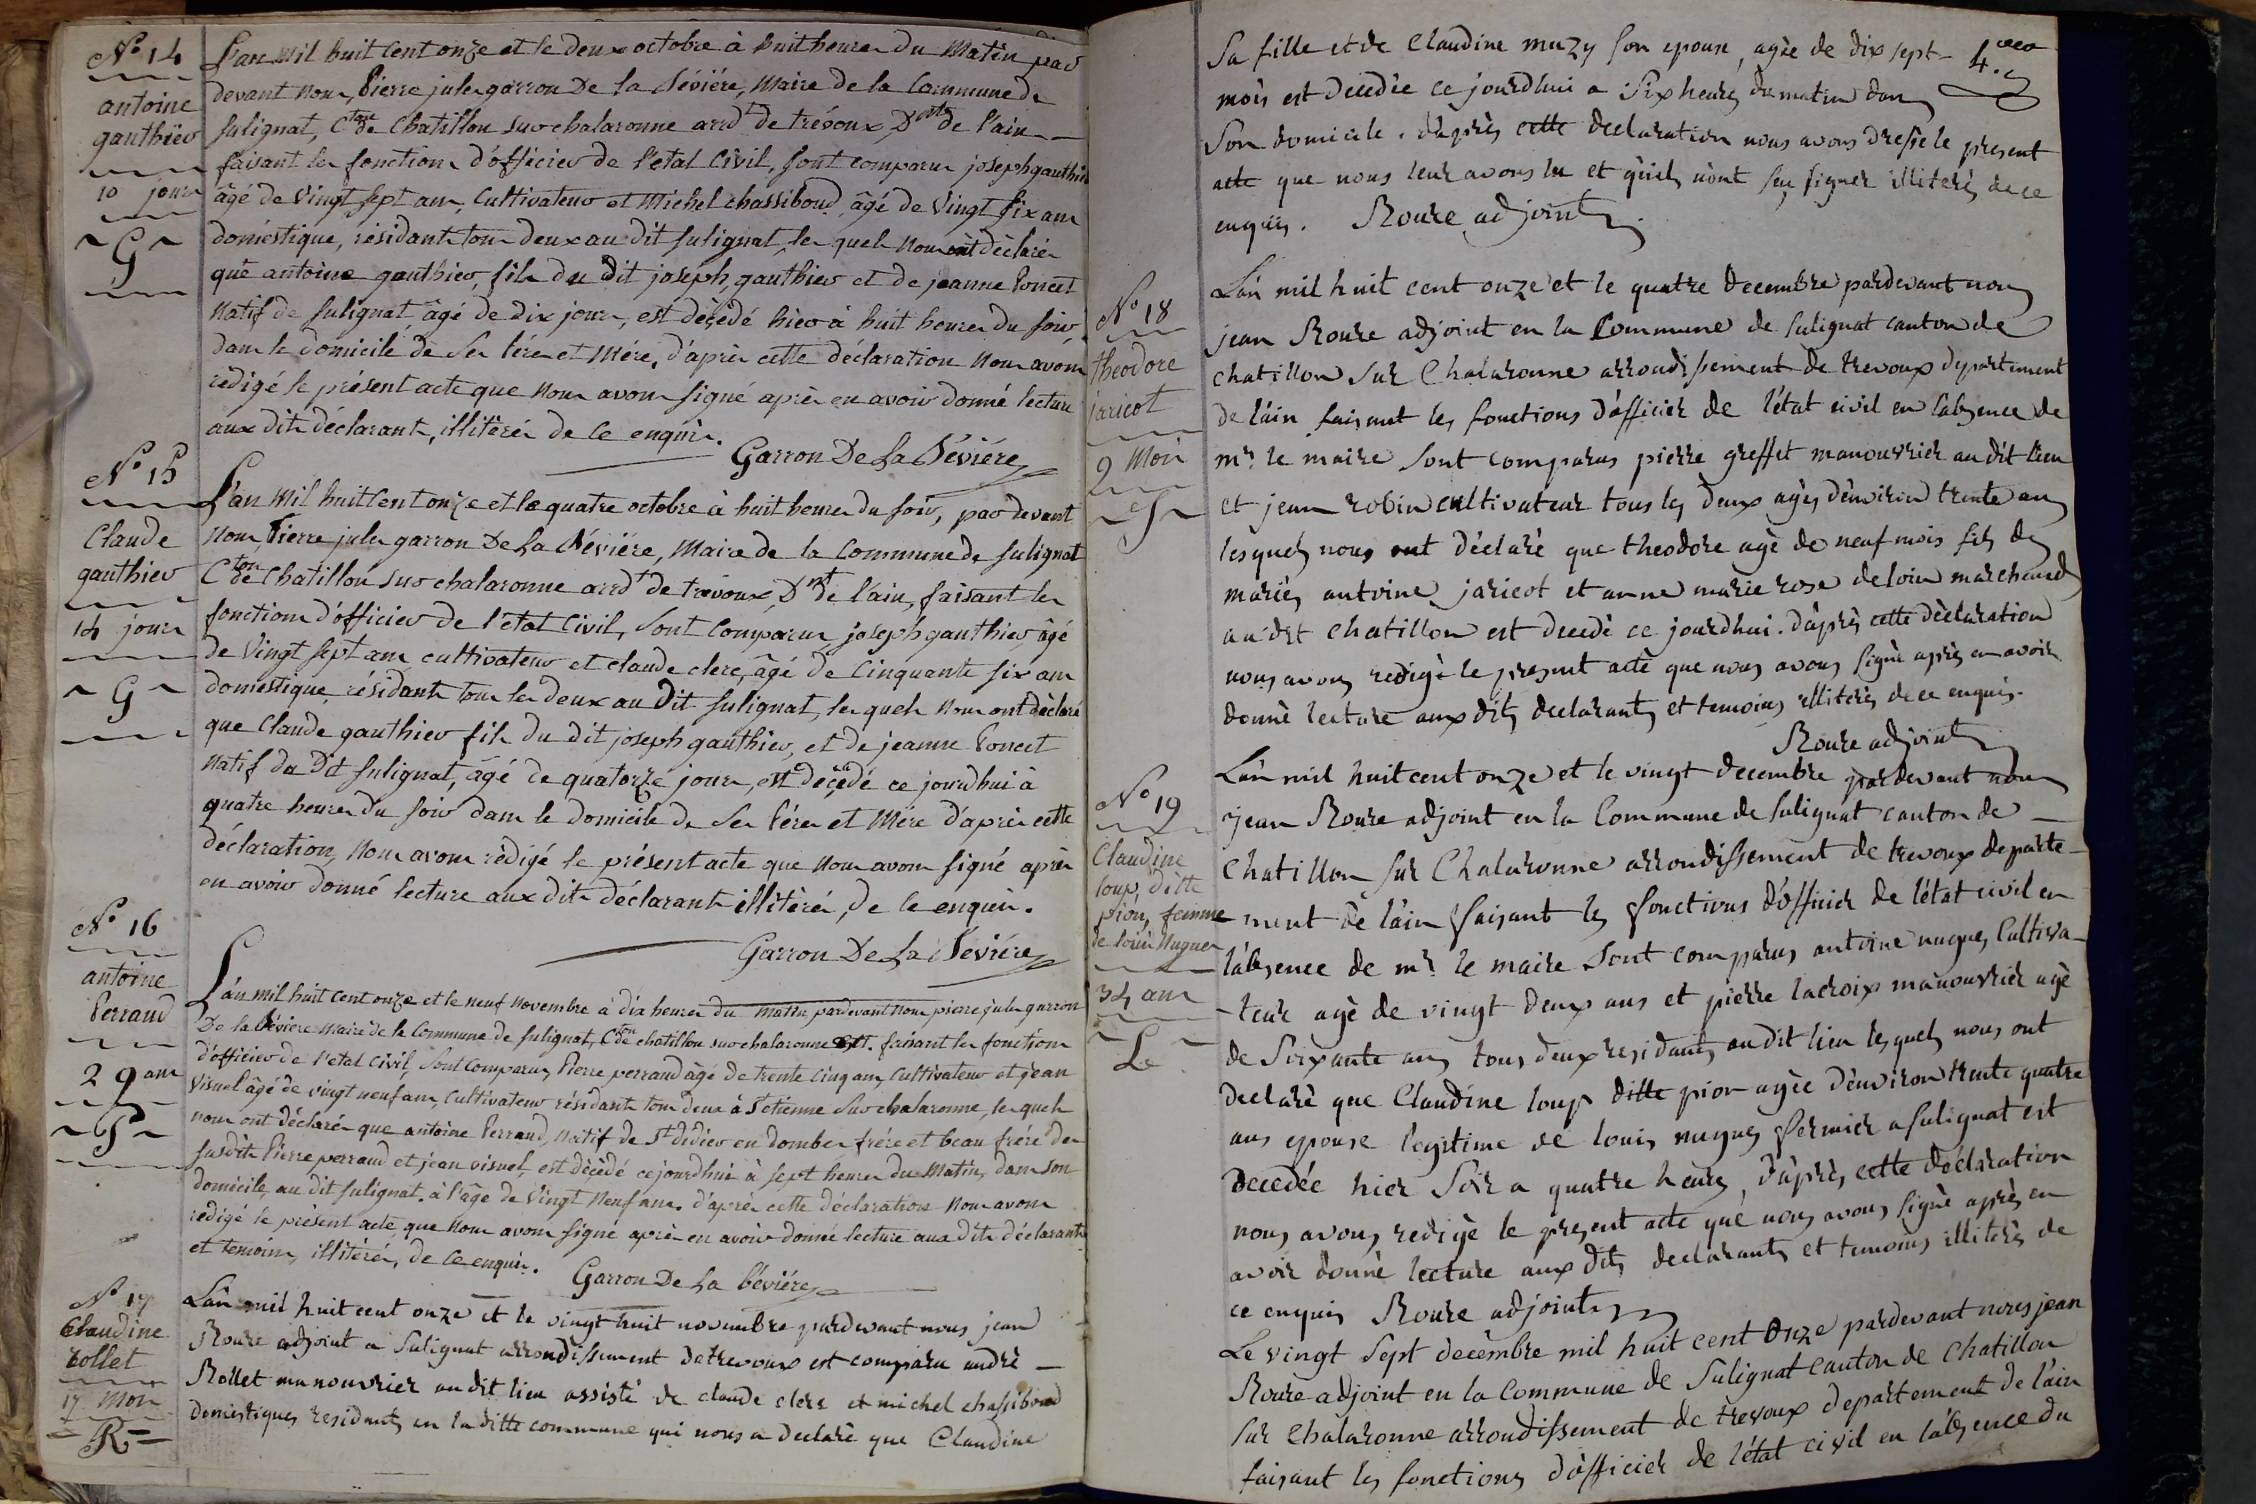 N° 14
antoine
gauthier
10 jours
G
L'an mil huit cent onze et le deux octobre à huit heures du Matin par
devant nous, Pierre jules garron De la Bévière, Maire de la Commune de
sulignat, Cton de Chatillon sur chalaronne arrdt de trévoux, Dmt de l'ain
faisant les fonctions d'officier de l'etat Civil, sont comparus joseph gauthier
âgé de Vingt sept ans, Cultivateur et Michel chassiboud, âgé de Vingt six ans
doméstique, résidants tous deux au dit sulignat, les quels nous ont déclarés
que antoine gauthier, fils du dit joseph, gauthier et de jeanne Poncet
Natif de sulignat, âgé de dix jours, est décédé hier à huit heures du soir
dans le domicile de Ses Pére et Mére, d'aprés cette déclaration Nous avons
redigé le présent acte que Nous avons signé aprés en avoir donné lecture
aux dits déclarants, illitérés de ce enquis.
Garron De La Bévière
N° 15
Claude
gauthier
14 jours
G
L'an Mil huit Cent onze et le quatre octobre à huit heures du soir, par devant
Nous, Pierre jules garron De La Bévière, Maire de la Commune de sulignat
Cton de Chatillon sur chalaronne arrdt de trévoux, Dmt de l'ain, faisant les
fonctions d'officier de l'etat Civil, Sont Comparus joseph gauthier, âgé
de Vingt sept ans cultivateur et claude clerc, âgé de Cinquante six ans
doméstique, résidants tous les deux au Dit sulignat, les quels Nous ont déclaré
que Claude gauthier fils du dit joseph gauthier, et de jeanne Poncet
Natif du Dit sulignat, âgé de quatorze jours, est décédé ce jourdhui à
quatre heures du soir dans le domicile de Ses Pére et Mére d'aprés cette
déclaration, Nous avons rédigé le présent acte que Nous avons signé aprés
en avoir donné lecture aux dits déclarants illitérés, de ce enquis.
Garron De La Bévière
N° 16
antoine
Perraud
29 ans
P
L'an mil huit cent onze et le neuf Novembre à dix heures du Matin pardevant Nous pierre jules garron
De la Bévière Maire de la Commune de sulignat, Cton de chatillon sur chalaronne &ct. faisant les fonctions
d'officier de l'etat Civil, Sont Comparus, Pierre perraud âgé de trente Cinq ans, Cultivateur et jean
Visuel âgé de vingt neuf ans, Cultivateur résidants tous deux à St etienne sur chalaronne, les quels
nous ont déclarés que antoine Perraud, Natif de St didier en dombes frére et beau frére des
susdits Pierre perraud et jean visuel, est décédé cejourdhui à sept heures du Matin, dans son
domicile, au dit sulignat, à l'âge de Vingt Neuf ans. d'aprés cette déclaration Nous avons
rédigé le présent acte, que Nous avons signé aprés en avoir donné lecture aux dits déclarants
et temoins, illitérés, de ce enquis.
Garron De La Bévière
N° 17
Claudine
rollet
17 Mois
R
L'an mil huit cent onze et le vingt huit novembre pardevant nous jean
Roure adjoint a Sulignat arrondissement de trevoux est comparu andré
Rollet manouvrier au dit lieu assisté de claude clerc et michel chassiboud
domestiques residants en la ditte commune qui nous a declaré que Claudine
4.eme
Sa fille et de Claudine muzy son epouse, agée de dix sept
mois est decedée ce jourdhui a Six heures du matin dans
Son domicile. d'après cette declaration nous avons dressé le present
acte que nous leur avons lu et qu'ils n'ont sçu signer illiterés de ce
enquis. Roure adjoint.
N° 18
theodore
jaricot
9 Mois
J
L'an mil huit cent onze et le quatre decembre pardevant nous
jean Roure adjoint en la Commune de Sulignat canton de
chatillon Sur Chalaronne arrondissement de trevoux departement
de l'ain faisant les fonctions d'officier de l'état civil en l'absence de
mr. le maire Sont comparus pierre greffet manouvrier au dit lieu
et jean robin cultivateur tous les deux agés d'environ trente ans
lesquels nous ont déclaré que theodore agé de neuf mois fils des
mariés antoine jaricot et anne marie rose deloin marchand
au dit chatillon est decedé ce jourdhui. d'après cette déclaration
nous avons redigé le present acte que nous avons signé après en avoir
donné lecture aux dits declarants et temoins illiterés de ce enquis.
Roure adjoint
N° 19
Claudine
loup, ditte
pion, femme
de louis Nugues
34 ans
L
L'an mil huit cent onze et le vingt decembre pardevant nous
jean Roure adjoint en la Commune de Sulignat canton de
Chatillon Sur Chalaronne arrondissement de trevoux departe-
ment de l'ain faisant les fonctions d'officier de l'état civil en
l'absence de mr. le maire Sont comparus antoine nugues Cultiva-
teur agé de vingt deux ans et pierre lacroix manouvrier agé
de Soixante ans tous deux residants au dit lieu lesquels nous ont
declaré que Claudine loup ditte pion agée d'environ trente quatre
ans epouse legitime de louis nugues fermier a Sulignat est
decedée hier Soir a quatre heures, d'après cette déclaration
nous avons redigé le present acte que nous avons signé après en
avoir donné lecture aux dits declarants et temoins illiterés de
ce enquis Roure adjoint
Le vingt Sept decembre mil huit cent Onze pardevant nous jean
Roure adjoint en la Commune de Sulignat canton de Chatillon
Sur Chalaronne arrondissement de trevoux departement de l'ain
faisant les fonctions d'officier de l'état civil en l'absence du